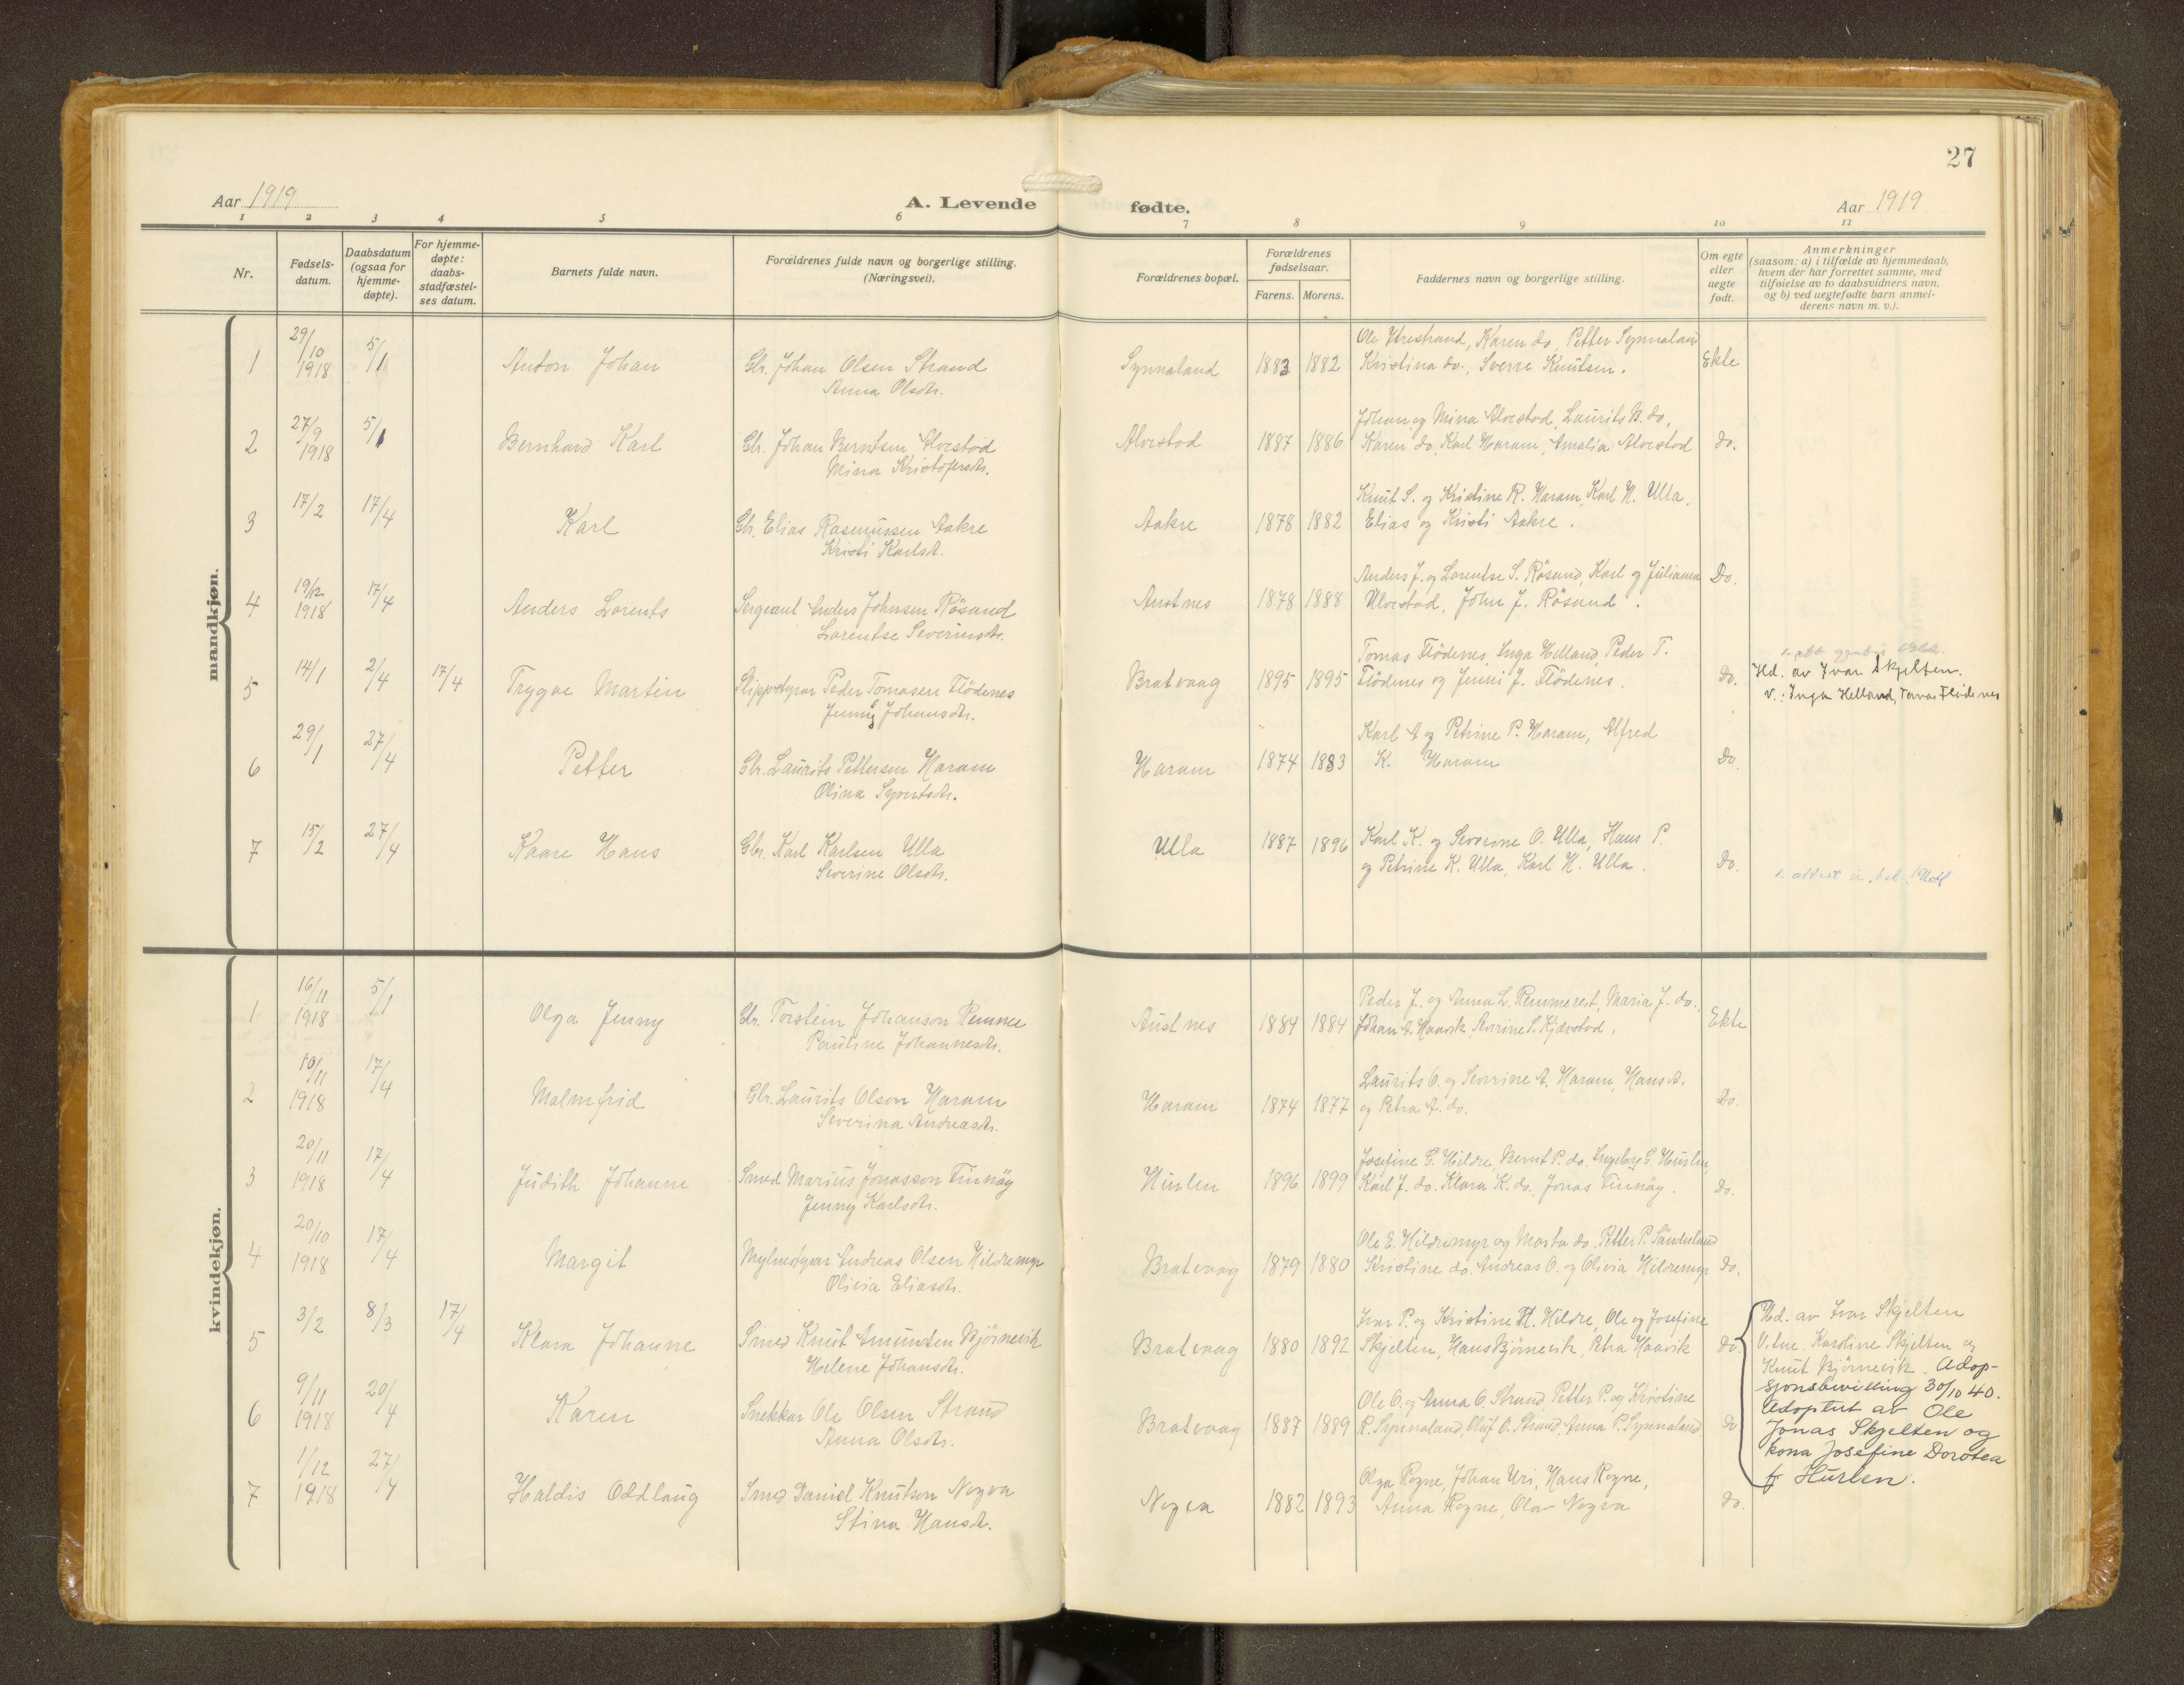 27
Aar 1919
A. Levende fødte.
Aar 1919
1 2 3 4 5 6 7 8 9 10 11
Nr.
Fødsels-
datum.
Daabsdatum
(ogsaa for
hjemme-
døpte).
For hjemme-
døpte:
daabs-
stadfæstel-
ses datum.
Barnets fulde navn.
Forældrenes fulde navn og borgerlige stilling.
(Næringsvei).
Forældrenes bopæl.
Forældrenes
fødselsaar.
Farens. Morens.
Faddernes navn og borgerlige stilling.
Om egte
eller
uegte
født.
Anmerkninger
(saasom: a) i tilfælde av hjemmedaab,
hvem der har forrettet samme, med
tilføielse av to daabsvidners navn,
og b) ved uegtefødte barn anmel-
derens navn m. v.).
mandkjøn.
1 29/10 1918 5/1 Anton Johan Gbr. Johan Olsen Strand
Anna Olsdtr.
Synnaland 1883 1882
Ole Ytrestrand, Karen do, Petter Synnaland
Kristina do., Sverre Knutsen. Ekte
2 27/9 1918 5/1 Bernhard Karl Gbr. Johan Berntsen Alvestad
Mina Kristofersdtr.
Alvestad 1887 1886
Johan og Mina Alvestad, Laurits B. do,
Karen do, Karl Haram, Amalia Alvestad do.
3 17/2 17/4 Karl Gbr. Elias Rasmussen Aakre
Kristi Karlsdt.
Aakre 1878 1882
Knut S. og Kristine R. Haram, Karl H. Ulla,
Elias og Kristi Aakre.
4 19/12 1918 17/4 Anders Lorents Sergeant Anders Johnsen Røsand
Lorentse Severinsdtr.
Austnes 1878 1888
Anders J. og Lorentse S. Røsand, Karl og Julianna Do.
Ulvestad, John J. Røsund.
5 14/1 2/4 17/4 Trygve Martin Skippstyrar Peder Tomasen Flødenes
Jenny Johansdtr.
Bratvaag 1895 1895
Tomas Flødenes, Inga Helland, Peder T.
Flødenes og Jenni J. Flødenes. Do.
Hd. av Ivar Skjelten.
v.: Inga Helland, Tomas Flødenes
6 29/1 27/4 Petter Gbr. Laurits Pettersen Haram
Olina Syvertsdtr.
Haram 1874 1883
Karl A og Petrine P. Haram, Alfred
K. Haram Do.
7 15/2 27/4 Kaare Hans Gbr. Karl Karlsen Ulla
Severine Olsdtr.
Ulla 1887 1896
Karl K. og Severine O. Ulla, Hans P.
og Petrine K. Ulla, Karl H. Ulla. Do.
kvindekjøn.
1 16/11 1918 5/1 Olga Jenny Gbr. Torstein Johanson Remme
Pauline Johannesdtr.
Austnes 1884 1884
Peder J. og Anna L. Remmerest, Maria J. do.,
Johan A. Haavik, Severine S. Kjærstad. Ekte
2 10/11 1918 17/4 Malmfrid Gbr. Laurits Olson Haram
Severina Andreasdtr.
Haram 1874 1877
Laurits O. og Severine A. Haram, Hans A.
og Petra A. do. Do.
3 20/11 1918 17/4 Judith Johanne Smed Marius Jonasson Finnøy
Jenny Karlsdtr.
Hurlen 1896 1899
Josefine G. Hildre, Bernt P. do. Ingeborg G. Hurlen,
Karl J. do. Klara K. do., Jonas Finnøy. Do.
4 20/10 1918 17/4 Margit Mylnestyrar Andreas Olsen Hildremyr
Olivia Eliasdtr.
Bratvaag 1879 1880
Ole E. Hildremyr og Marta do. Petter P. Sunderland
Kristine do. Andreas O. og Olivia Hildremyr Do.
5 3/2 8/3 17/4 Klara Johanne Smed Knut Amundsen Bjørnevik
Helene Johansdtr.
Bratvaag 1880 1892
Ivar P. og Kristine H. Hildre, Ole og Josefine
Skjelten, Hans Bjørnevik, Petra Haavik Do.
Hd. av Ivar Skjelten
Vitne. Karoline Skjelten og
Knut Bjørnevik. Adop-
sjonsbevilling 30/10 40.
Adoptert av Ole
Jonas Skjelten og
kona Josefine Dorotea
f. Hurlen.
6 9/11 1918 20/4 Karen Snekkar Ole Olsen Strand
Anna Olsdtr.
Bratvaag 1887 1889
Ole O. og Anna O. Strand, Petter P. og Kristine
R. Synnaland, Oluf O. Strand, Anna P. Synnaland. Do
7 1/12 1918 27/4 Haldis Oddlaug Smed Daniel Knutson Nogva
Stina Hansdt.
Nogva 1882 1893
Olga Rogne, Johan Uri, Hans Rogne,
Anna Rogne, Olav Nogva Do.